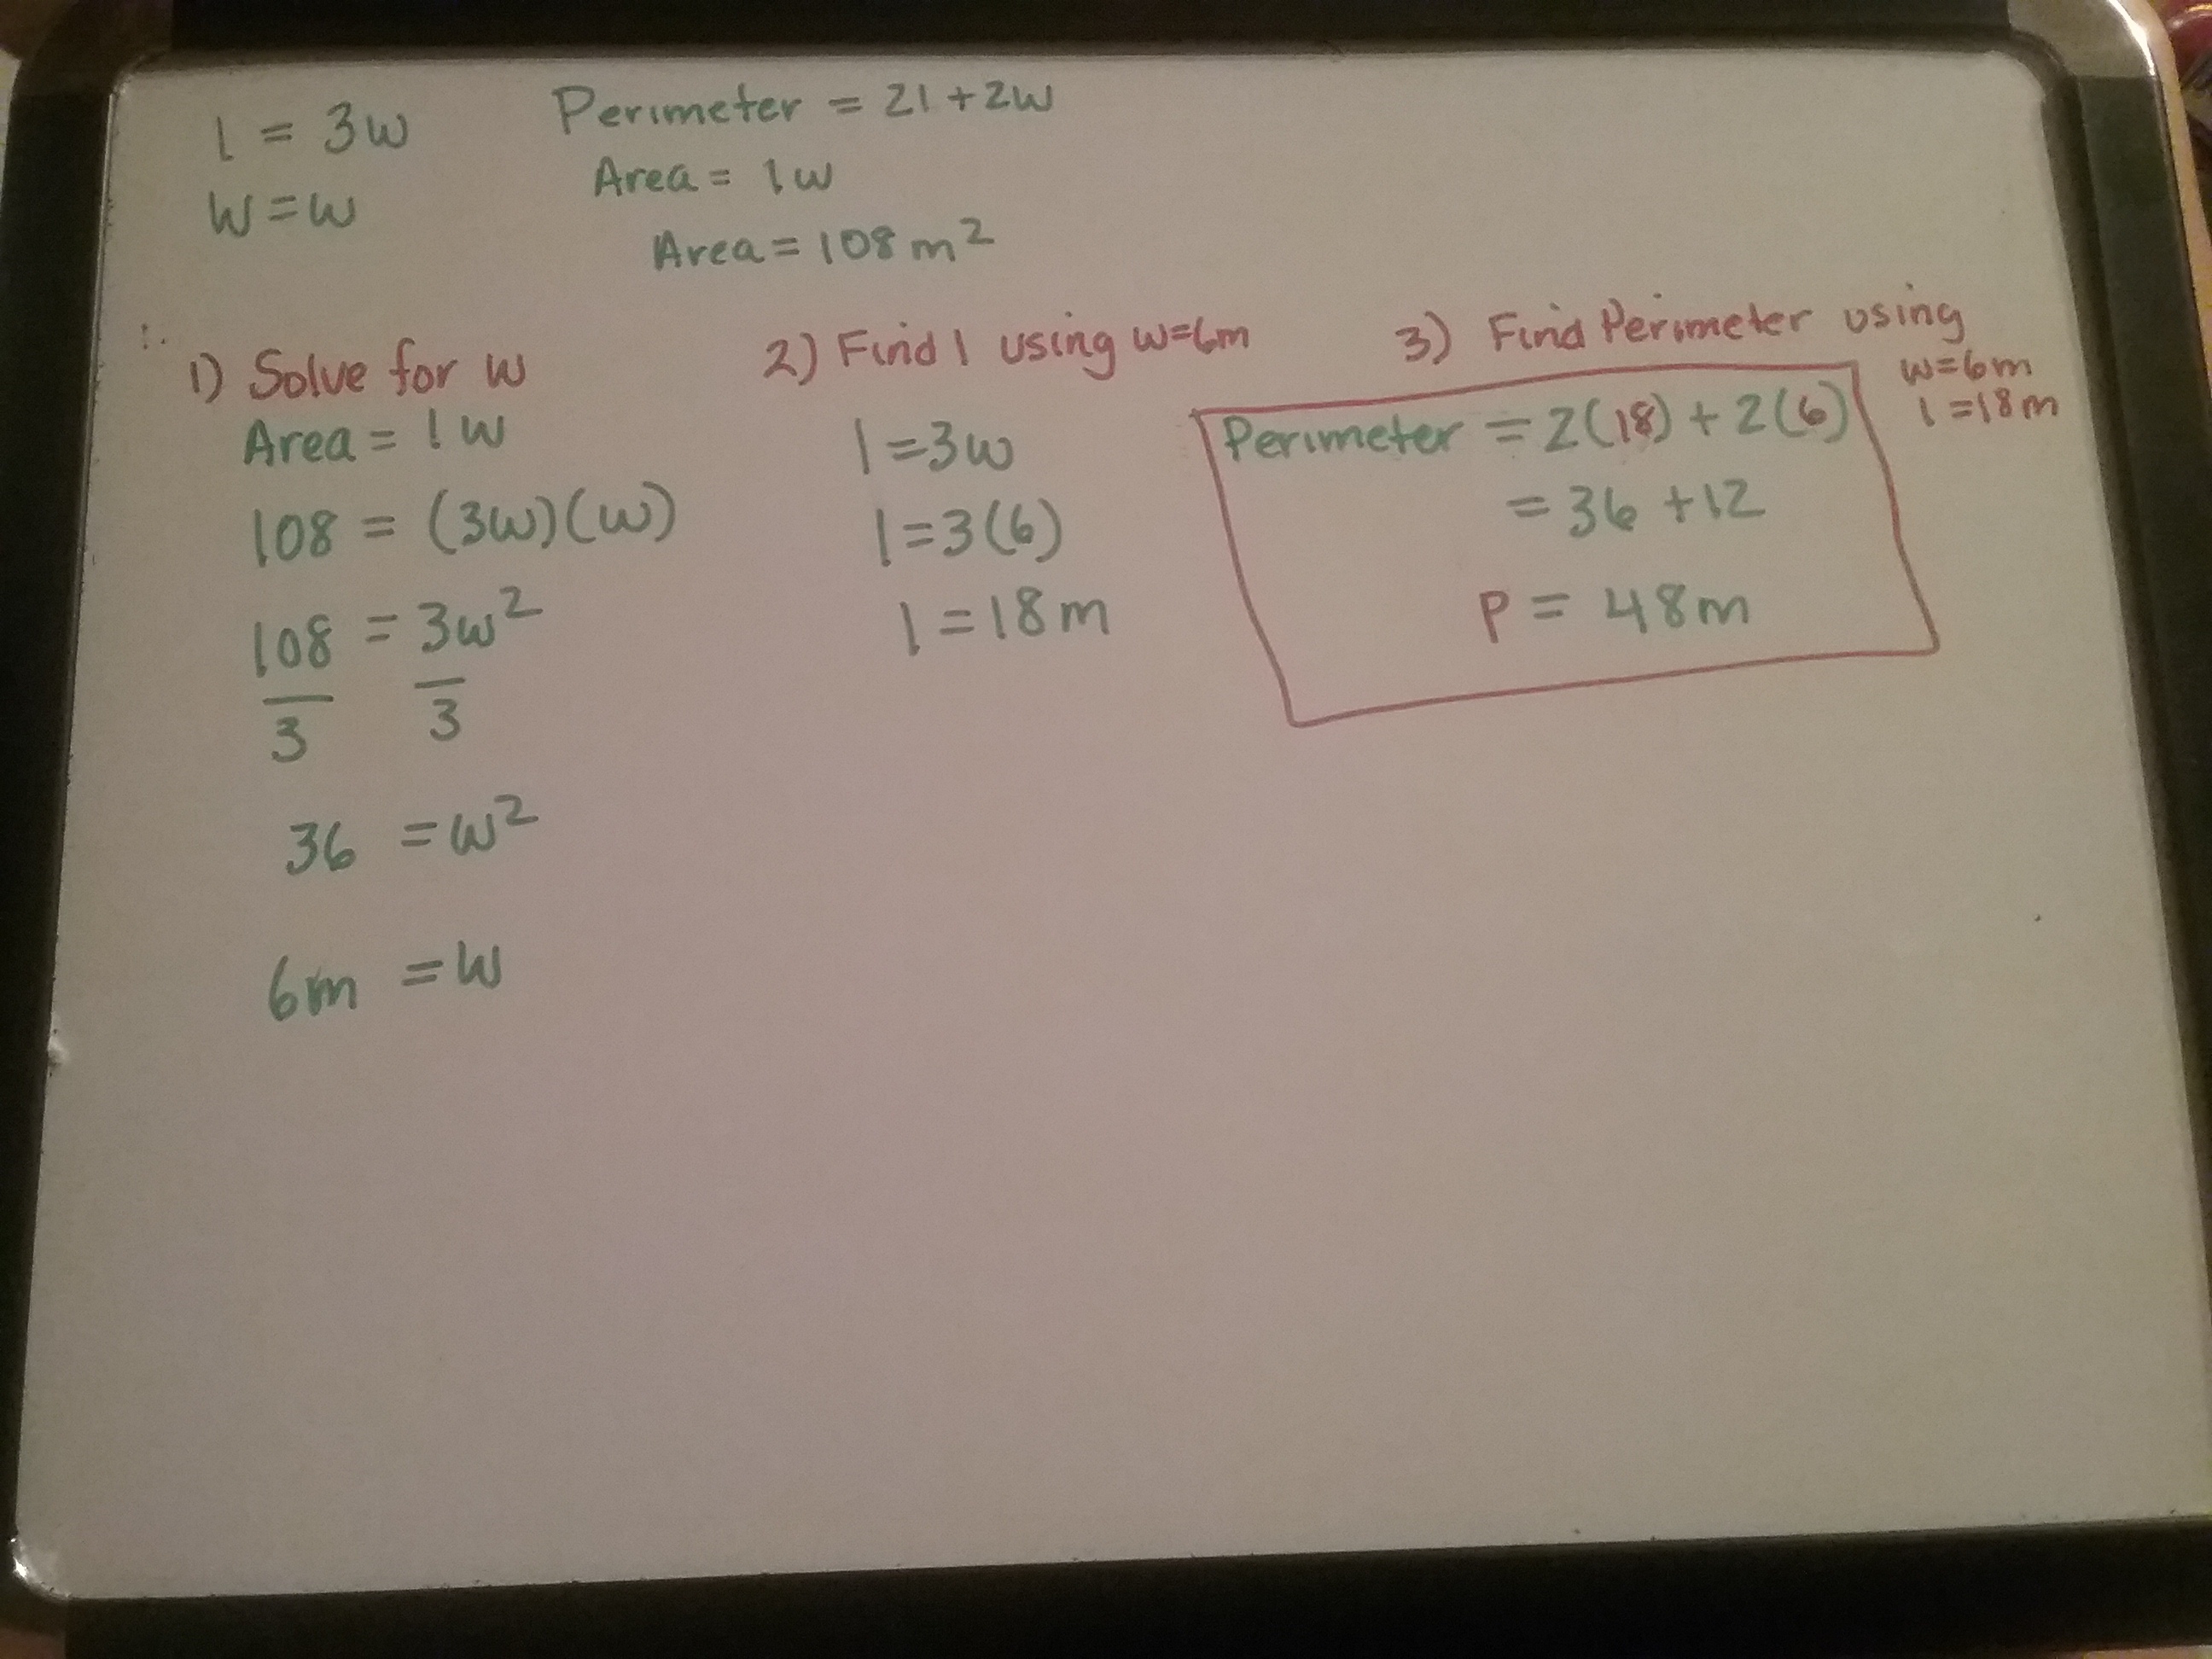 l = 3w
w = w
Perimeter = 2l + 2w
Area = lw
Area = 108 m²
1) Solve for w
Area = lw
108 = (3w)(w)
108 = 3w²
3 3
36 = w²
6m = w
2) Find l using w=6m
l = 3w
l = 3(6)
l = 18m
3) Find Perimeter using
w=6m
l=18m
Perimeter = 2(18) + 2(6)
= 36 + 12
P = 48m